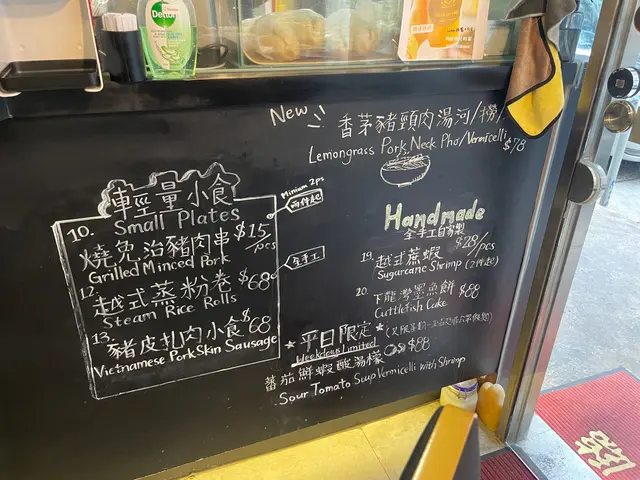 Dettol
New
香茅豬頸肉湯河/撈
Lemongrass Pork Neck Pho/Vermicelli $78
輕量小食
Small Plates
Minium 2ps
兩件起
10.
燒免治豬肉串 $15/pcs
Grilled Minced Pork
全手工
12.
越式蒸粉卷 $68
Steam Rice Rolls
13.
豬皮扎肉小食 $68
Vietnamese Pork Skin Sausage
Handmade
全手工自家製
19. 越式蔗蝦 $28/pcs
Sugarcane Shrimp (2件起)
20. 下龍灣墨魚餅 $88
Cuttlefish Cake
*平日限定*
Weekdays Limited
蕃茄鮮蝦酸湯檬 $88
Sour Tomato Soup Vermicelli with Shrimp